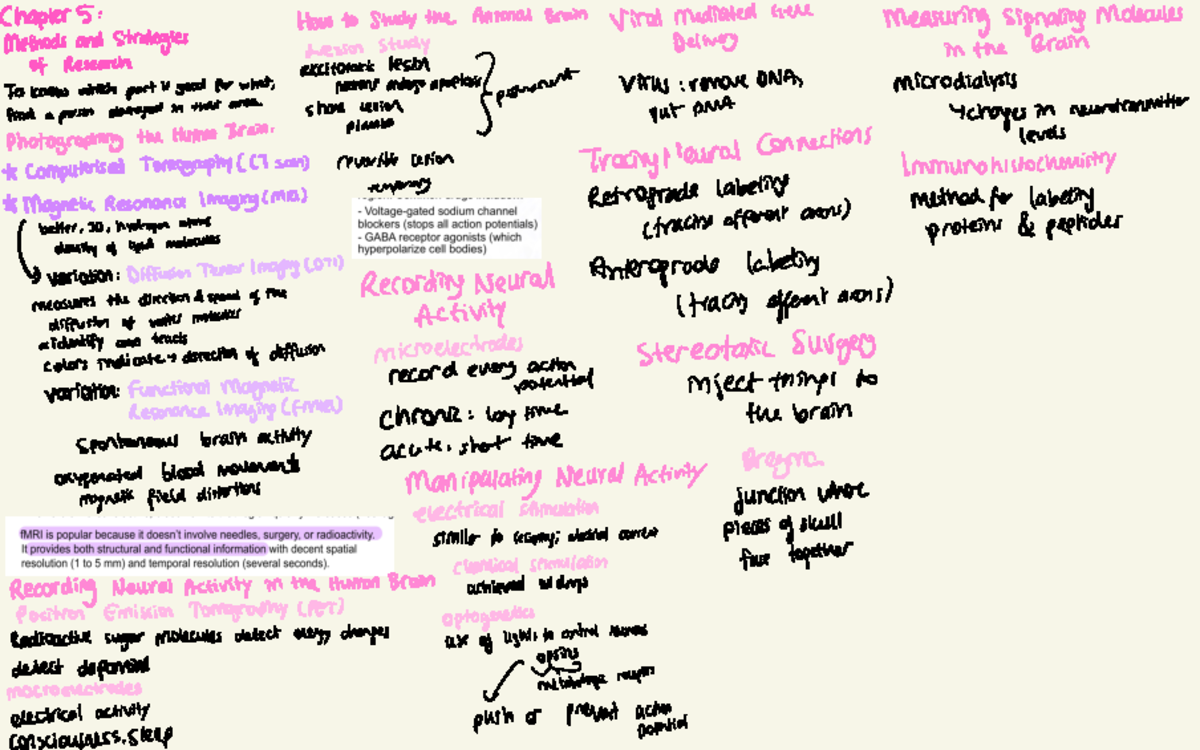 Chapter 5:
Methods and Strategies
of Research
To know which part is good for what,
find a person damaged in that area.
Photographing the Human Brain.
* Computerised Tomography (CT scan)
* Magnetic Resonance Imaging (MRI)
better, 3D, hydrogen atoms
density of lipid molecules
variation: Diffusion Tensor Imaging (DTI)
measures the direction & speed of the
diffusion of water molecules
identify axon tracts
colors indicate direction of diffusion
variation: Functional Magnetic
Resonance Imaging (fMRI)
Spontaneous brain activity
oxygenated blood movements
magnetic field distortions
fMRI is popular because it doesn't involve needles, surgery, or radioactivity.
It provides both structural and functional information with decent spatial
resolution (1 to 5 mm) and temporal resolution (several seconds).
Recording Neural Activity in the Human Brain
Positron Emission Tomography (PET)
Radioactive sugar molecules detect energy changes
detect dopamine
macroelectrodes
electrical activity
consciousness, sleep
How to Study the Animal Brain
Lesion Study
excitotoxic lesion
neurons undergo apoptosis
sham lesion
placebo
permanent
reversible lesion
temporary
- Voltage-gated sodium channel
blockers (stops all action potentials)
- GABA receptor agonists (which
hyperpolarize cell bodies)
Recording Neural
Activity
microelectrodes
record every action
potential
chronic: long time
acute: short time
Manipulating Neural Activity
electrical stimulation
similar to recording; electrical current
chemical stimulation
achieved w/ drugs
optogenetics
use of lights to control neurons
opsins
push or prevent action
potential
Viral Mediated Gene
Delivery
Virus: remove DNA,
put DNA
Tracing Neural Connections
Retrograde labeling
(tracing afferent axons)
Anterograde labeling
(tracing efferent axons)
Stereotaxic Surgery
inject things to
the brain
Bregma
junction where
pieces of skull
fuse together
Measuring Signaling Molecules
in the Brain
microdialysis
↳ changes in neurotransmitter
levels
Immunohistochemistry
method for labeling
proteins & peptides